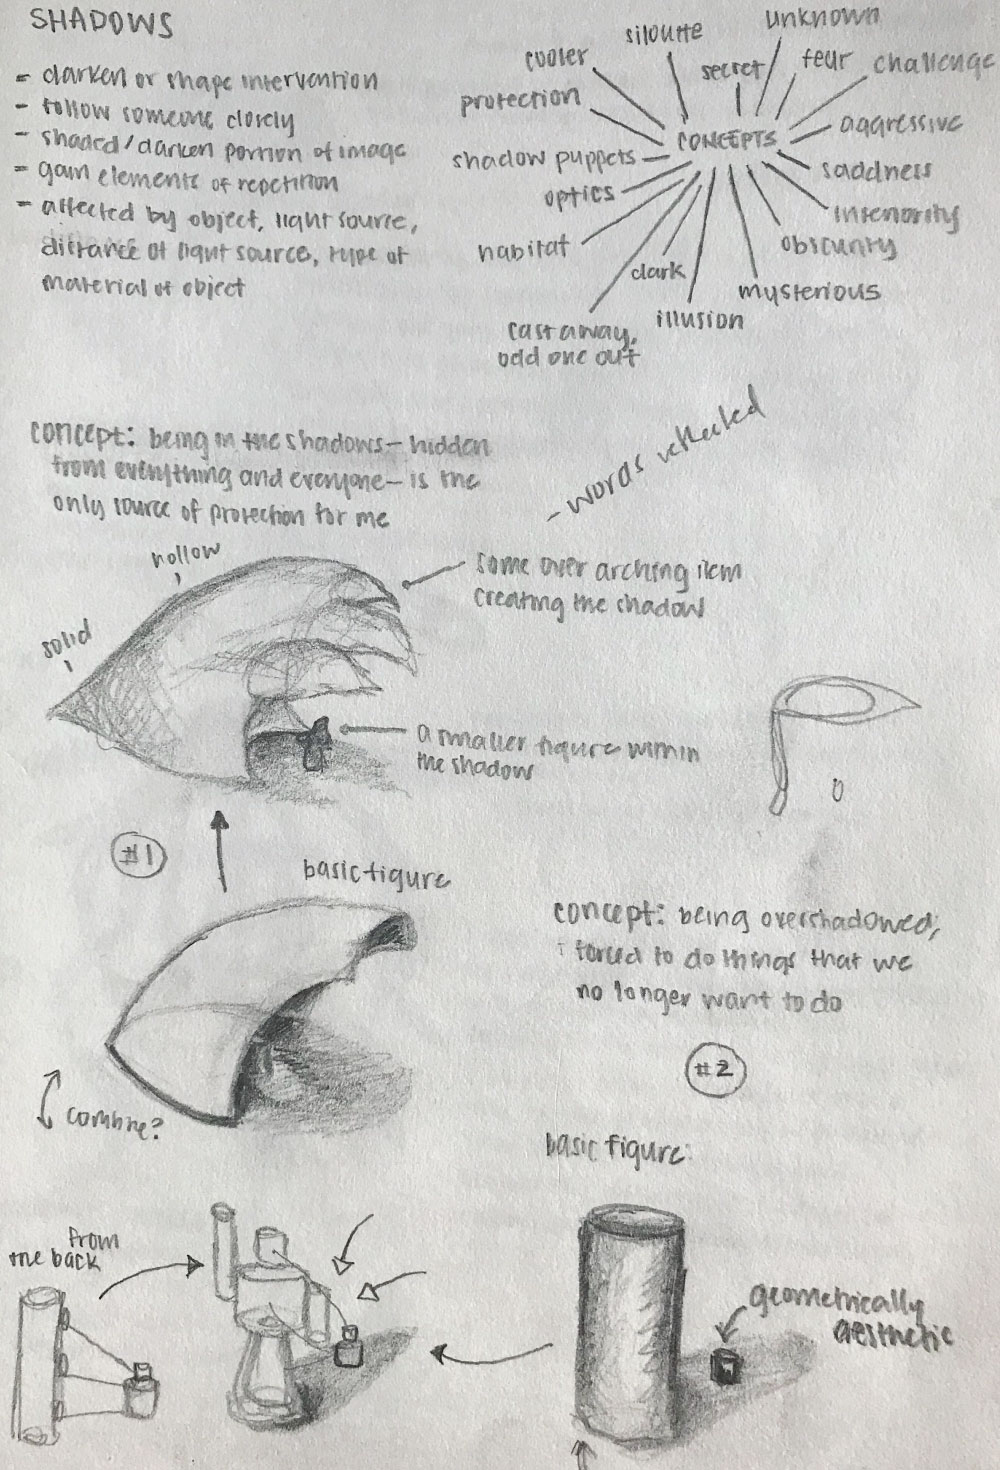 SHADOWS
- darken or shape intervention
- follow someone closely
- shaded/darken portion of image
- gain elements of repetition
- affected by object, light source,
distance of light source, type of
material of object
unknown
siloutte
cooler
secret
fear
challenge
protection
CONCEPTS
aggressive
shadow puppets
saddness
optics
interiority
habitat
obscurity
dark
mysterious
illusion
castaway,
odd one out
concept: being in the shadows - hidden
from everything and everyone - is the
only source of protection for me
- words reflected
hollow
solid
some over arching item
creating the shadow
a smaller figure within
the shadow
#1
basic figure
concept: being overshadowed,
forced to do things that we
no longer want to do
#2
combine?
basic figure:
from
the back
geometrically
aesthetic